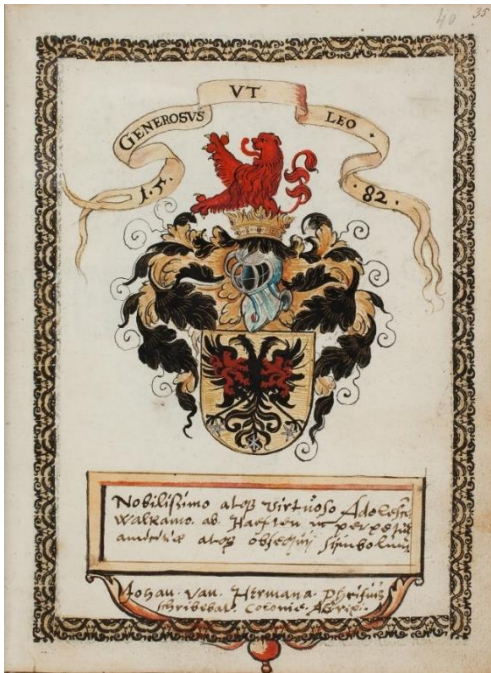 40 35
GENEROSVS VT LEO ·
· 15 · · 82 ·
Nobilissimo atqȝ virtuoso Adolesce
Walramo. ab. Haeften in perpetuæ
amicitiæ atqȝ obsequij simbolum
Johan. Van. Hermana. Phrisius
schribebat. Colonie. Agrip.